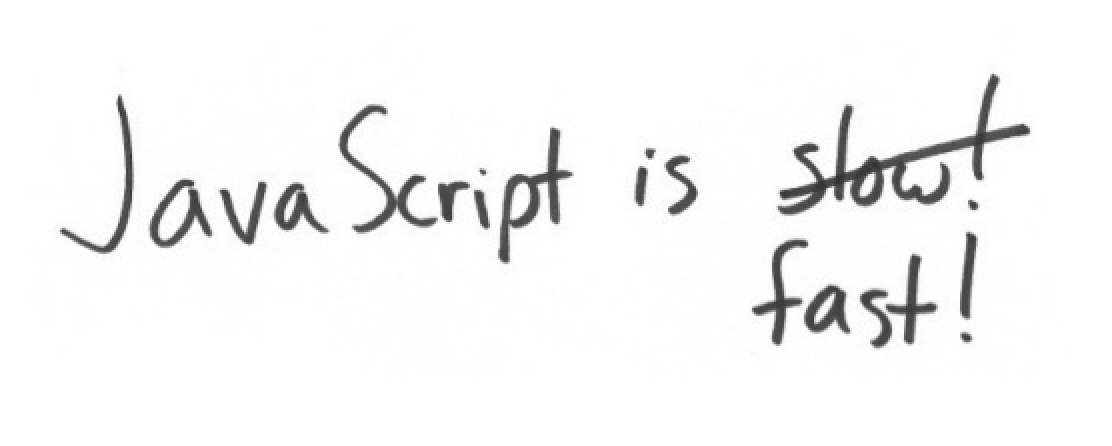 JavaScript is slow!
fast!